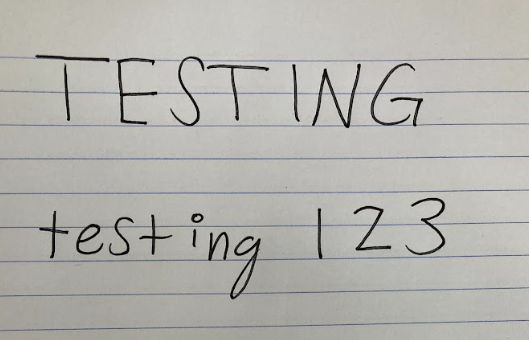 TESTING
testing 123